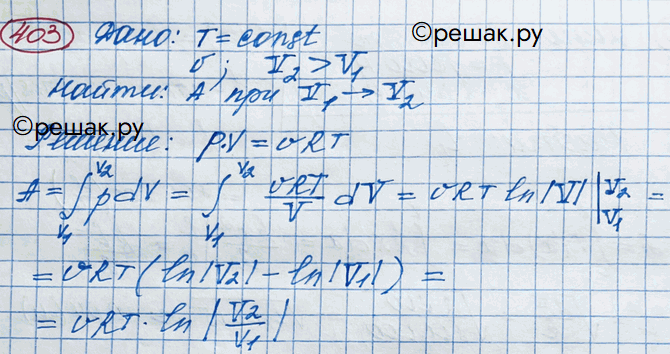 403 Дано: T = const
©решак.ру
υ; V₂ > V₁
Найти: A при V₁ → V₂
©решак.ру
Решение: p·V = υRT
A = ∫_{V₁}^{V₂} p dV = ∫_{V₁}^{V₂} υRT/V dV = υRT ln|V| |_{V₁}^{V₂} =
= υRT(ln|V₂| - ln|V₁|) =
= υRT · ln|V₂/V₁|